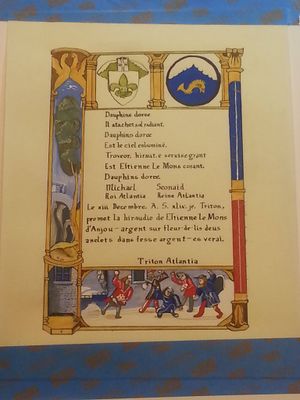 Dauphine doree
Dauphine doree
Est le ciel enluminé,
Troveor, hiraut, e servise grant
Est Eftienne Le Mons conant.
Dauphine doree.
Michael Seonaid
Roi Atlantia Reine Atlantia
Le xiii Decembre, A. S. xlix, je, Triton,
promet la hiraudie de Eftienne le Mons
d'Anjou - argent sur fleur de lis deus
anelets dans fesse argent - es verai.
Triton Atlantia